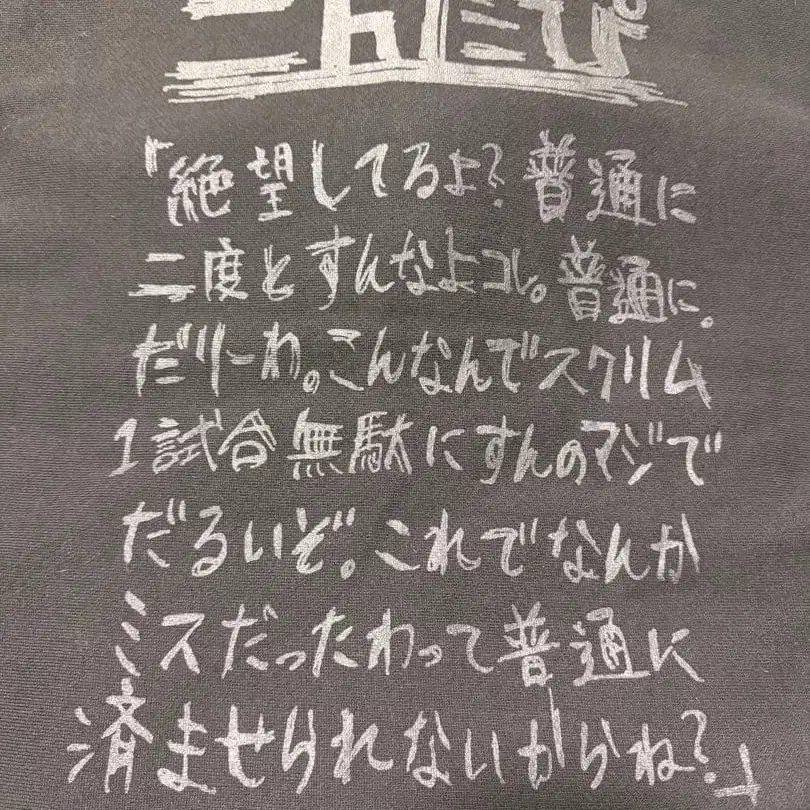 こんたぴ
「絶望してるよ?普通に
二度とすんなよコレ。普通に。
だりーわ。こんなんでスクリム
1試合無駄にすんのマジで
だるいぞ。これでなんか
ミスだったわって普通に
済ませられないからね?」